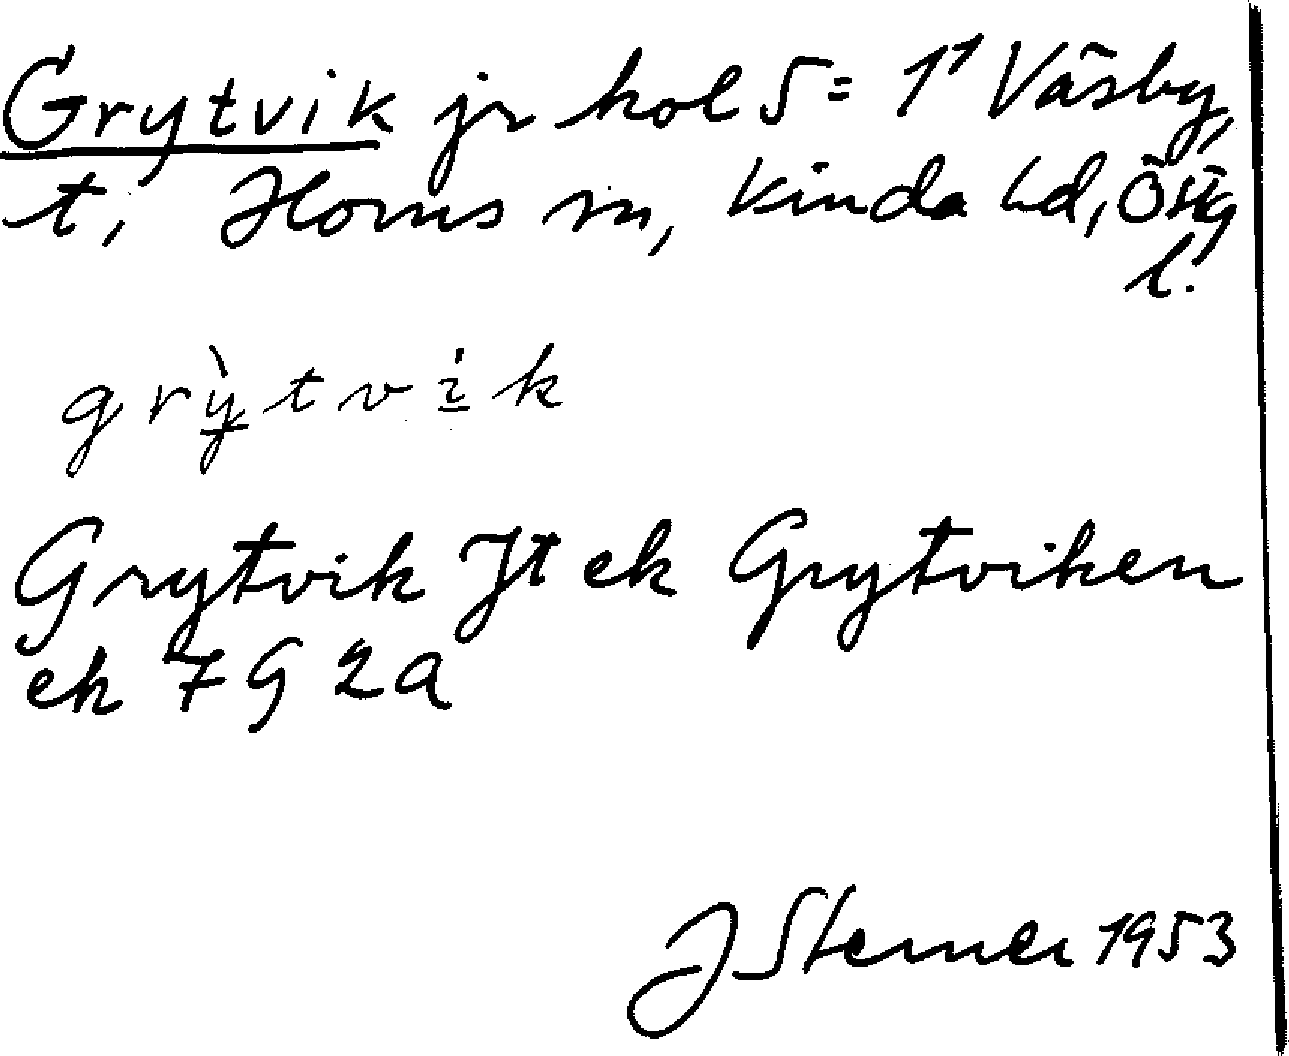 Grytvik jr kol 5 = 1¹ Väsby,
t, Horns sn, Kinda hd, Östg
l.
grỳtvìk
Grytvik Jt ek Grytviken
ek 7 G 2a
J Sterner 1953